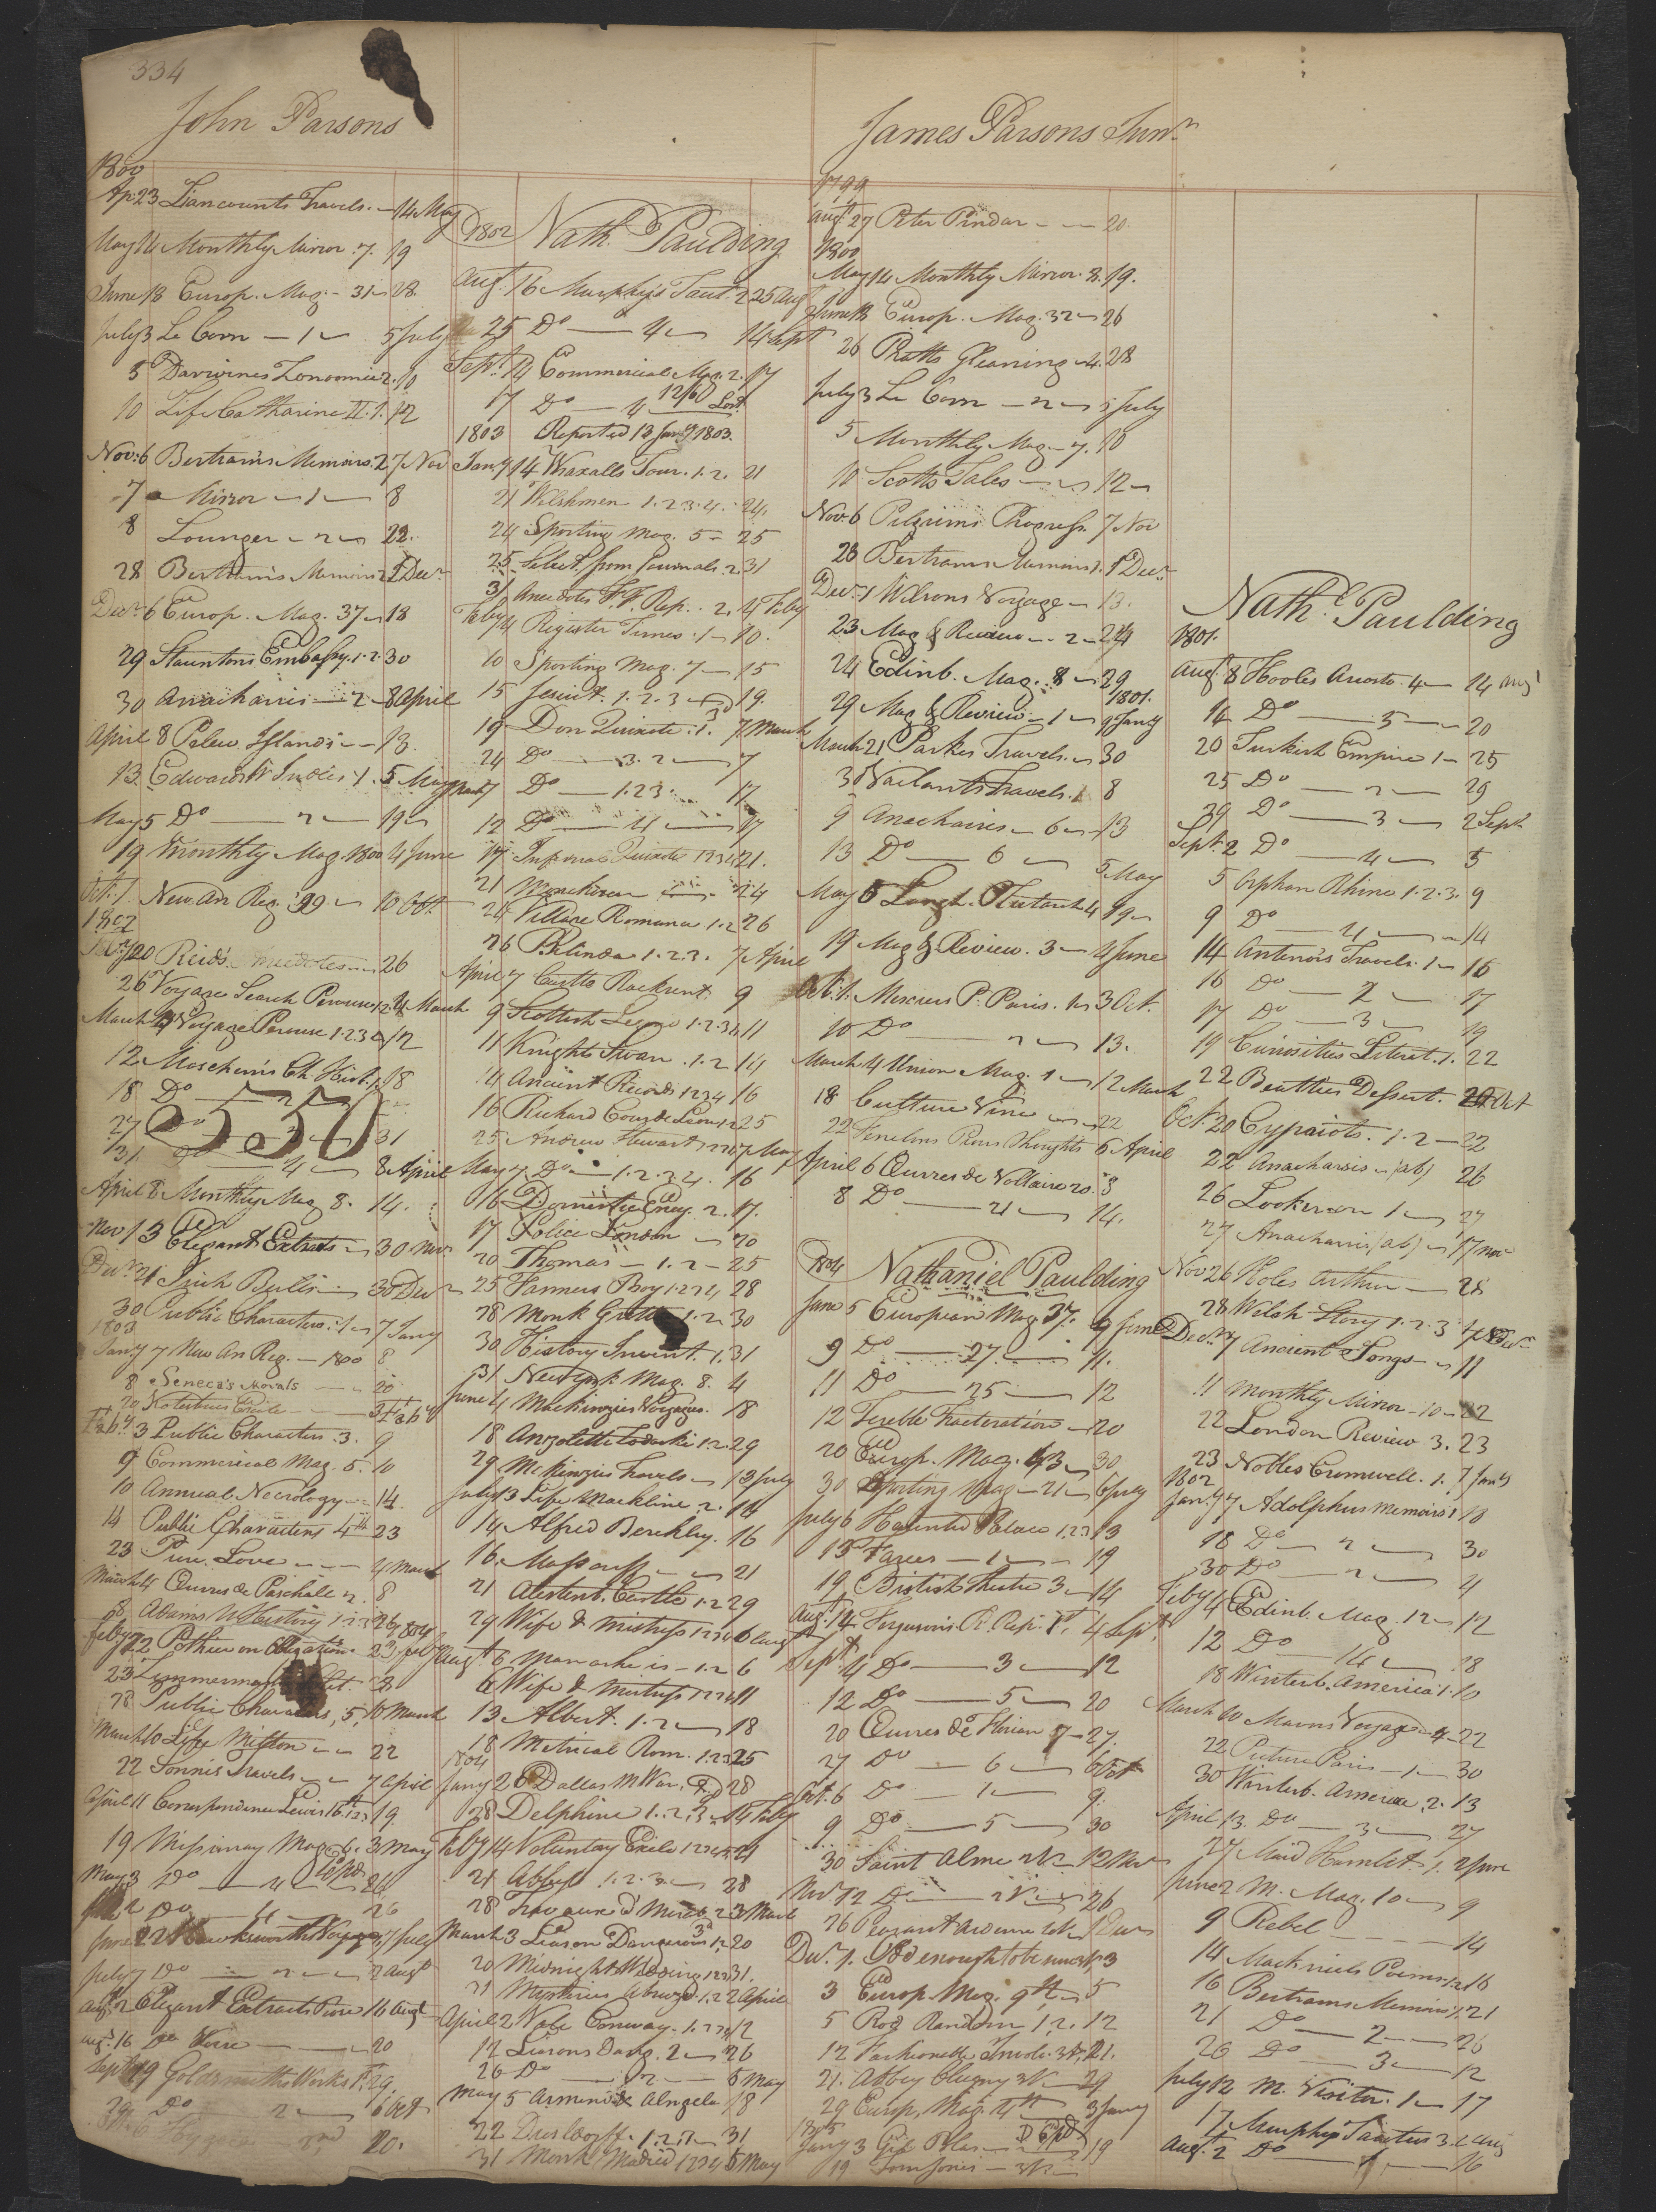 334
John Parsons
1800
Ap. 23 Liancourts Travels. — 14 May
May 14 Monthly Mirror. 7. 19
June 18 Europ. Mag. — 31 — 28
July 3 Le Corn — 1 — 5 July
5 Darwines Zonomia 2. 10
10 Life Catharine II. 1. 12
Nov. 6 Bertram's Memoirs. 2 7 Nov
7 Mirror — 1 — 8
8 Lounger — 2 — 22.
28 Bertram's Memoirs 2 1 Decr
Decr 6 Europ. Mag. 37 — 18
29 Stauntons Embassy. 1.2. 30
30 Anacharsis — 2 — 8 April
April 8 Pelew Islands — 13.
13 Edwards W Indies. 1. 5 May
May 5 Do — 2 — 19
19 Monthly Mag. 1800 4 June
Oct. 1 New An Reg. 99 — 10 Oct.
1802
20 Reids — 26
26 Voyage Search Perouse 1.2. 4 March
March 4 Voyage Perouse 1.2.3. 12
12 Moscheim's Ch. Hist. 1. 18
18 Do — 2
27 Do 31
550
31 Do — 4 — 8 April
April 8 Monthly Mag 8. 14.
Nov 13 Elegant Extracts — 30 Nov
Decr 21 Irish Bulls — 30 Decr
30 Public Characters. 1 — 7 Jany
1803
Jany 7 New An Reg. — 1800 8
8 Seneca's Morals — 20
20 Kotzebues Exile — 3 Feby
Feby 3 Public Characters. 3. 9
9 Commercial Mag. 5. 10
10 Annual Necrology — 14.
14 Public Characters 4th 23
23 Pure Love — 4 March
March 4 Œuvres de Paschalle 2. 8
8 Adams W History 1.2.
1804
Feby 22 Pothier on Obligations. 23 Feby
23 Zimmerman 28
28 Public Characters, 5, 10 March
March 10 Life Milton — 22
22 Sonnis Travels — 7 April
April 11 Correspondence Lewis 16th 1.2.3. 19.
19 Missionary Mag. 6. 3 May
May 3 Do — 4 — 26
2 Do 4 26
June 22 Hawkesworths Voyages 7 July
July 7 Do — 2 — 2 Augt
Augt 2 Elegant Extracts Prose 16 Augt
Augt 16 Do Verse — 20
Sept 19 Goldsmiths Works 1. 29
29 Do 2 — 6 Oct
20.
1802 Nath. Paulding
Augt 16 Murphy's Tacit. 2 25 Augt
25 Do — 4 — 14 Sept
Sept. 14 Commercial Mag. 2. 17
17 Do — 4 12/6D Lost
1803 Reported 13 Jany 1803.
Jany 14 Wraxalls Tour. 1.2. 21
21 Welshmen 1.2.3.4. 24.
24 Sporting Mag. 5 — 25
25 Select. from Journals. 2. 31
31 Anecdotes F. F. Rep. 2. 4 Feby
Feby 4 Register Times. 1 — 10.
10 Sporting Mag. 7 — 15
15 Jesuit. 1.2.3 — 19.
19 Don Quixote. 1. 7 March
24 Do — 3.2 — 7
March 7 Do — 1.2.3 17
12 Do — 4 — 17
17 Infernal Quixote 1.2.3.4. 21.
21 24
24 Village Romance 1.2 26
26 Belinda 1.2.3. 7 April
April 7 Castle Rackrent. 9
9 Scottish Legend 1.2.3.4. 11
11 Knights Swan. 1.2 14
14 Ancient Records 1.2.3.4 16
16 Richard Coeur de Leon 1.2 25
25 Andrew Stewart 1.2.3.4 7 May
May 7. Do — 1.2.3.4. 16
16 Domestic Ency. 2. 17.
17 Police London — 20
20 Thomas — 1.2 — 25
25 Farmers Boy 1.2.3.4 28
28 Monk 1.2. 30
30 History Invent. 1. 31
31 New York Mag. 8. 4
June 4 Mackinzies Voyages. 18
18 1.2. 29
29 McKinzies Travels — 13 July
July 13 Life Mackline 2. 14
14 Alfred Berckley. 16
16. 21
21 Castle 1.2 29
29 Wife & Mistress 1.2.3.4 6 Augt
Augt 6 — 1.2 6
6 Wife & Mistress 1.2.3.4 11
13 Albert. 1.2 — 18
18 Metrical Rom. 1.2.3 25
1804
Jany 26 Dallas M War. 28
28 Delphine 1.2.3 — 14 Feby
Feby 14 Voluntary Exile 1.2.3.4.5. 21
21 Abbess 1.2.3. — 28
28 2 3 March
March 3 Liason Dangerous 1.2. 20
20 Midnight Wedding 1.2.3. 31.
31 Mysterious 1.2 2 April
April 2 Nobe Conway. 1.2.3.4 12
12 Liasons Dang. 2 — 26
26 Do — 2 — 5 May
May 5 Armond & Alngela 18
22 Dusseldorff. 1.2.3 — 31
31 Monk Madrid 1.2.3.4 5 May
James Parsons Junr
1799
Augt 27 Peter Pindar — 20.
1800
May 14 Monthly Mirror. 8. 19.
June 18 Europ. Mag. 32 — 26
26 Pratts Gleaning 4. 28
July 3 Le Corn — 2 — 5 July
5 Monthly Mag. 7. 10
10 Scotts Tales — 12
Nov. 6 Pilgrims Progress. 7 Nov
28 Bertrams Memoirs 1. 1 Decr
Decr 1 Wilsons Voyage — 13.
23 Mag & Review — 2 — 24
24 Edinb. Mag. 8 — 29
1801.
29 Mag & Review — 1 — 9 Jany
March 21 Parkes Travels — 30
30 Vailants Travels. 1 8
9 Anacharsis — 6 — 13
13 Do — 6 — 5 May
May 5 Langh. Plutarch 4 19
19 Mag & Review. 3 — 4 June
Oct. 1. Merciers P. Paris. 1 — 3 Oct.
10 Do — 2 — 13.
March 4 Union Mag. 1 — 12 March
18 Culture Vine — 22
22 Fenelons Pious Thoughts 6 April
April 6 Œuvres de Voltaire 20. 8
8 Do — 21 — 14.
1804 Nathaniel Paulding
June 5 European Mag 37. 9 June
9 Do — 27 — 11.
11 Do — 25 — 12
12 — 20
20 Europ. Mag. 43 — 30
30 Sporting Mag — 21 — 6 July
July 6 Haunted Palace 1.2.3 13
13 Farces — 1 — 19
19 British Theatre 3 — 14
Augt 14 Fergusons R. Rep. 1st. 4 Sept.
Sept 4 Do — 3 — 12
12 Do — 5 — 20
20 Œuvres de Florian 7 — 27.
27 Do — 6 — 6 Oct
Oct. 6 Do — 1 — 9.
9 Do — 5 — 30
30 Saint Alme 2 V. 12 Nov
Nov 12 Do — 2 V. — 26
26 Peasant Ardenne 1 Decr
Decr 1. Odd enough to be sure 1. 3
3 Europ Mag. 9th — 5
5 Rod Random 1.2. 12
12 21.
21. Abbey Clugny 3 V — 29
29 Europ. Mag. 4th 3 Jany
1805
Jany 3 Gil Blas — 19
19 Tom Jones — 3 V. —
Nath. Paulding
1801.
Augt 8 Hooles Ariosto. 4 — 14 Augt
14 Do — 5 — 20
20 Turkish Empire 1 — 25
25 Do — 2 — 29
29 Do — 3 — 2 Sept
Sept. 2 Do — 4 — 5
5 Orphan Rhine 1.2.3. 9
9 Do — 4 — 14
14 Antenors Travels. 1 — 16
16 Do — 2 — 17
17 Do — 3 — 19
19 Curiosities Literat. 1. 22
22 Beatties Dissert. Oct
Oct 20 Cypriots. 1.2 — 22
22 Anacharsis — (ab) 26
26 Looker on 1 — 27
27 Anacharsis (ab) — 17 Nov
Nov 26 Holes Arthur — 28
28 Welsh Story 1.2.3. 7 Decr
Decr 7 Ancient Songs — 11
11 Monthly Mirror — 10 — 22
22 London Review 3. 23
23 Nobles Cromwell. 1. 7 Jany
1802
Jany 7 Adolphus Memoirs 1 18
18 Do — 2 — 30
30 Do — 2 — 4
Feby 4 Edinb. Mag. 12 — 12
12 Do — 14 — 18
18 Winterb. America 1. 10
March 10 Mavors Voyages 4 — 22
22 Picture Paris — 1 — 30
30 Winterb. America 2. 13
April 13 Do — 3 — 27
27 Maid Hamlet. 1. 2 June
June 2 M. Mag. 10 — 9
9 Rebel — 14
14 Mackneils Poems 1.2 16
16 Bertrams Memoirs 1. 21
21 Do — 2 — 26
26 Do — 3 — 12
July 12 M. Visitor. 1 — 17
17 Murphys Tacitus 3. 2 Aug
Augt 2 Do — 1 — 16